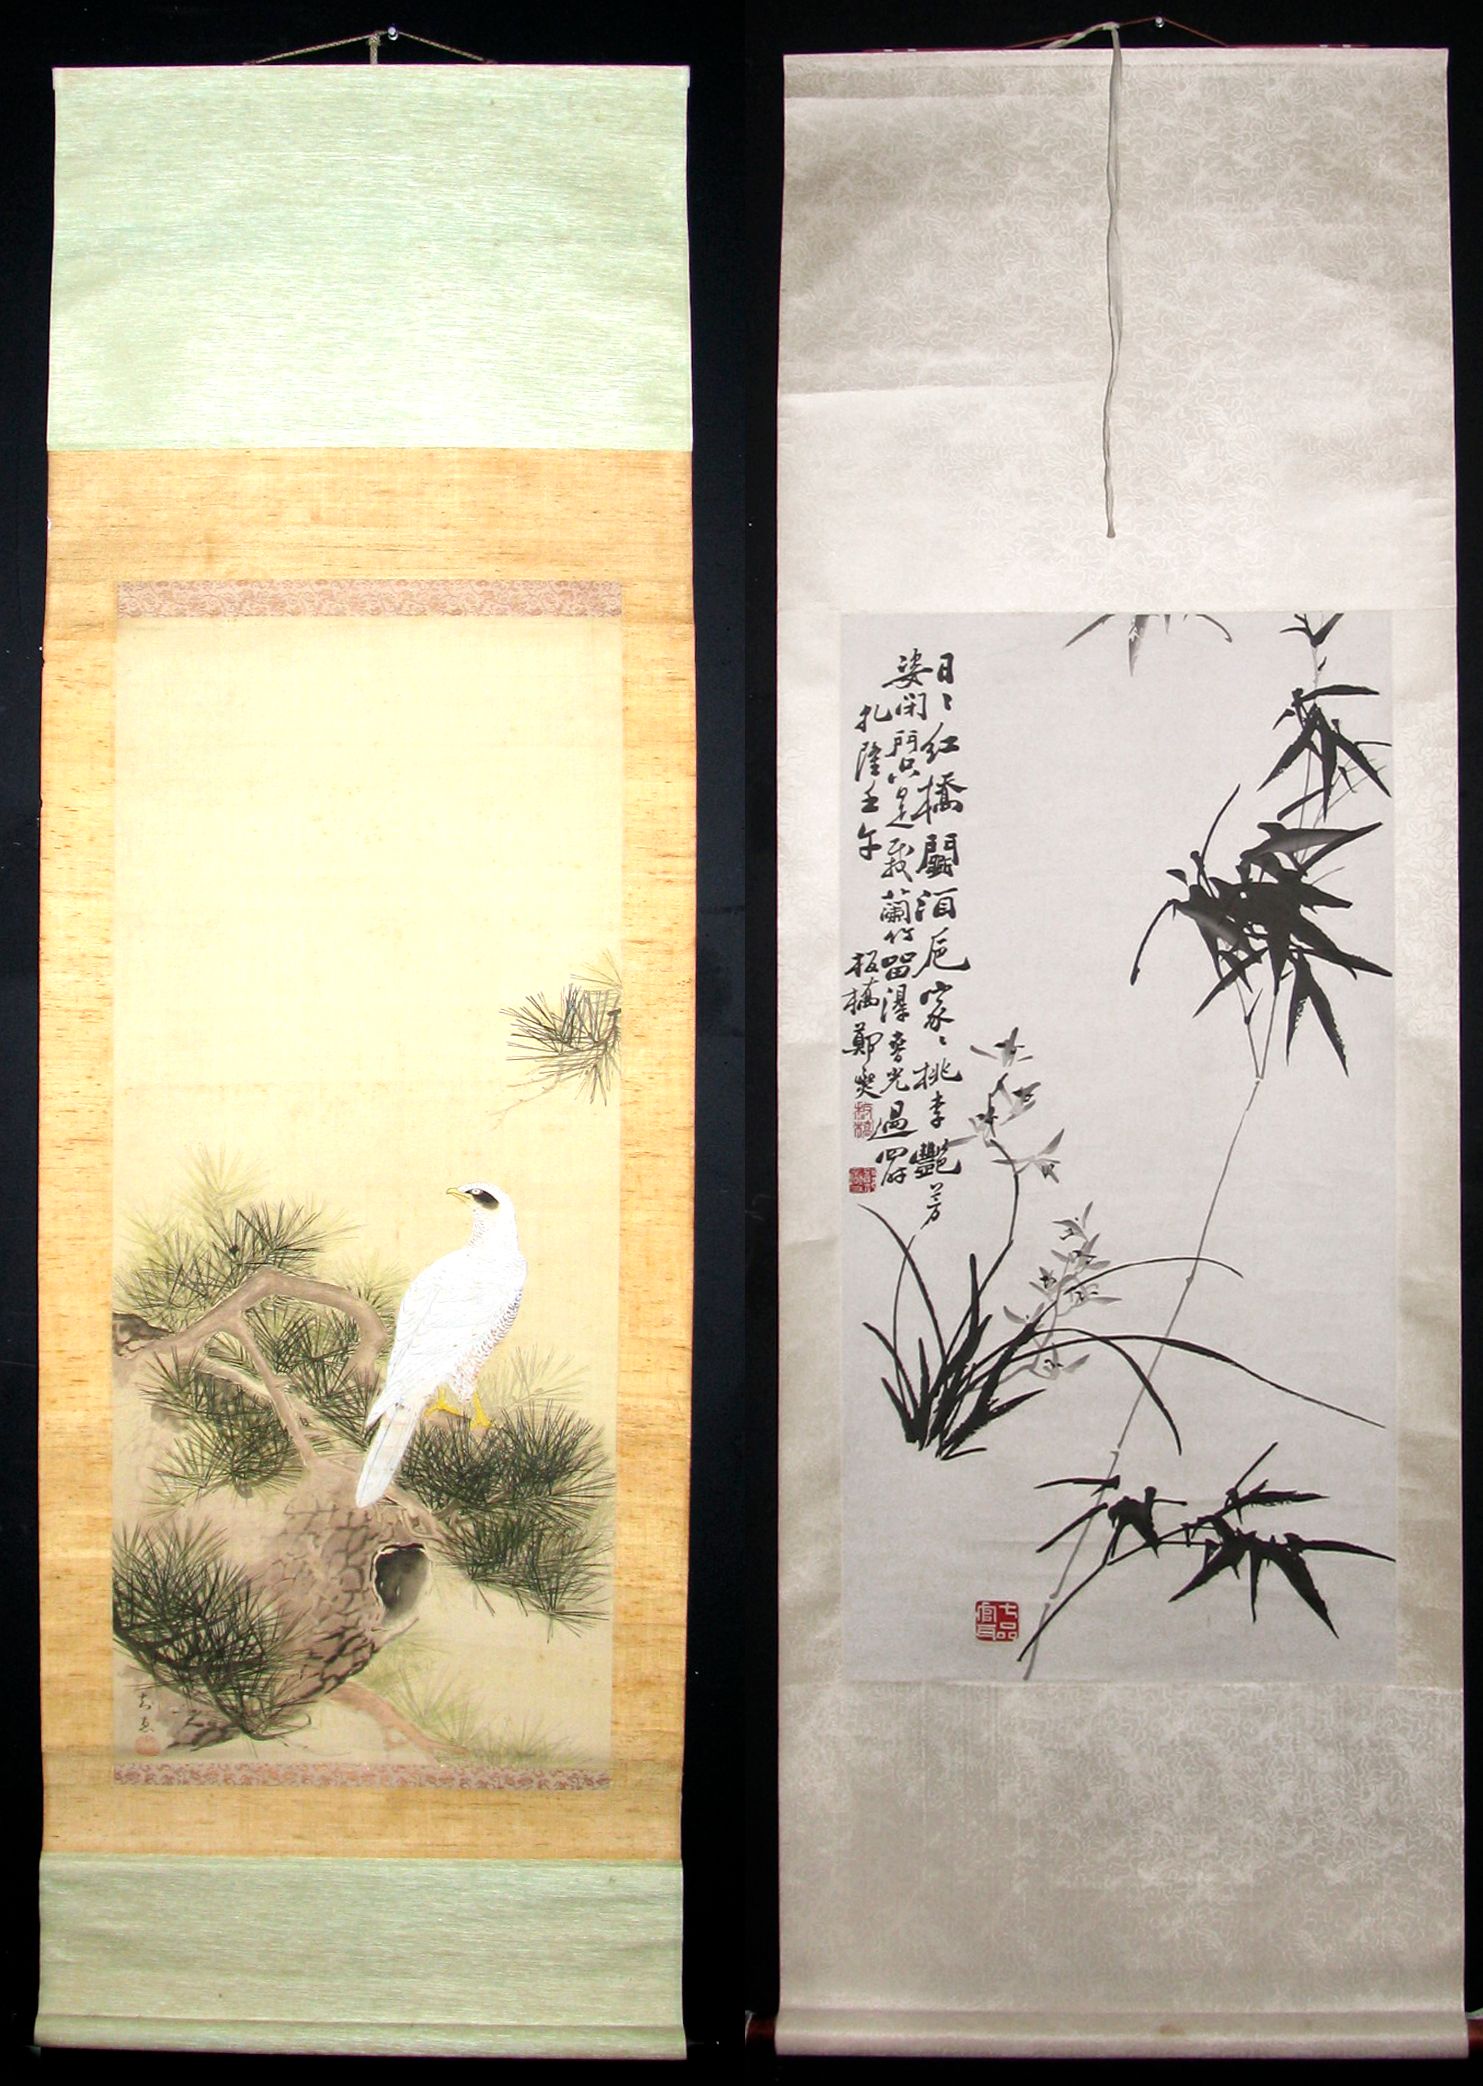 日〻紅橋鬪酒卮家〻桃李艷芳
姿閉門只是栽蘭竹留得春光過四时
乾隆壬午
板橋鄭燮
板橋
七品官耳